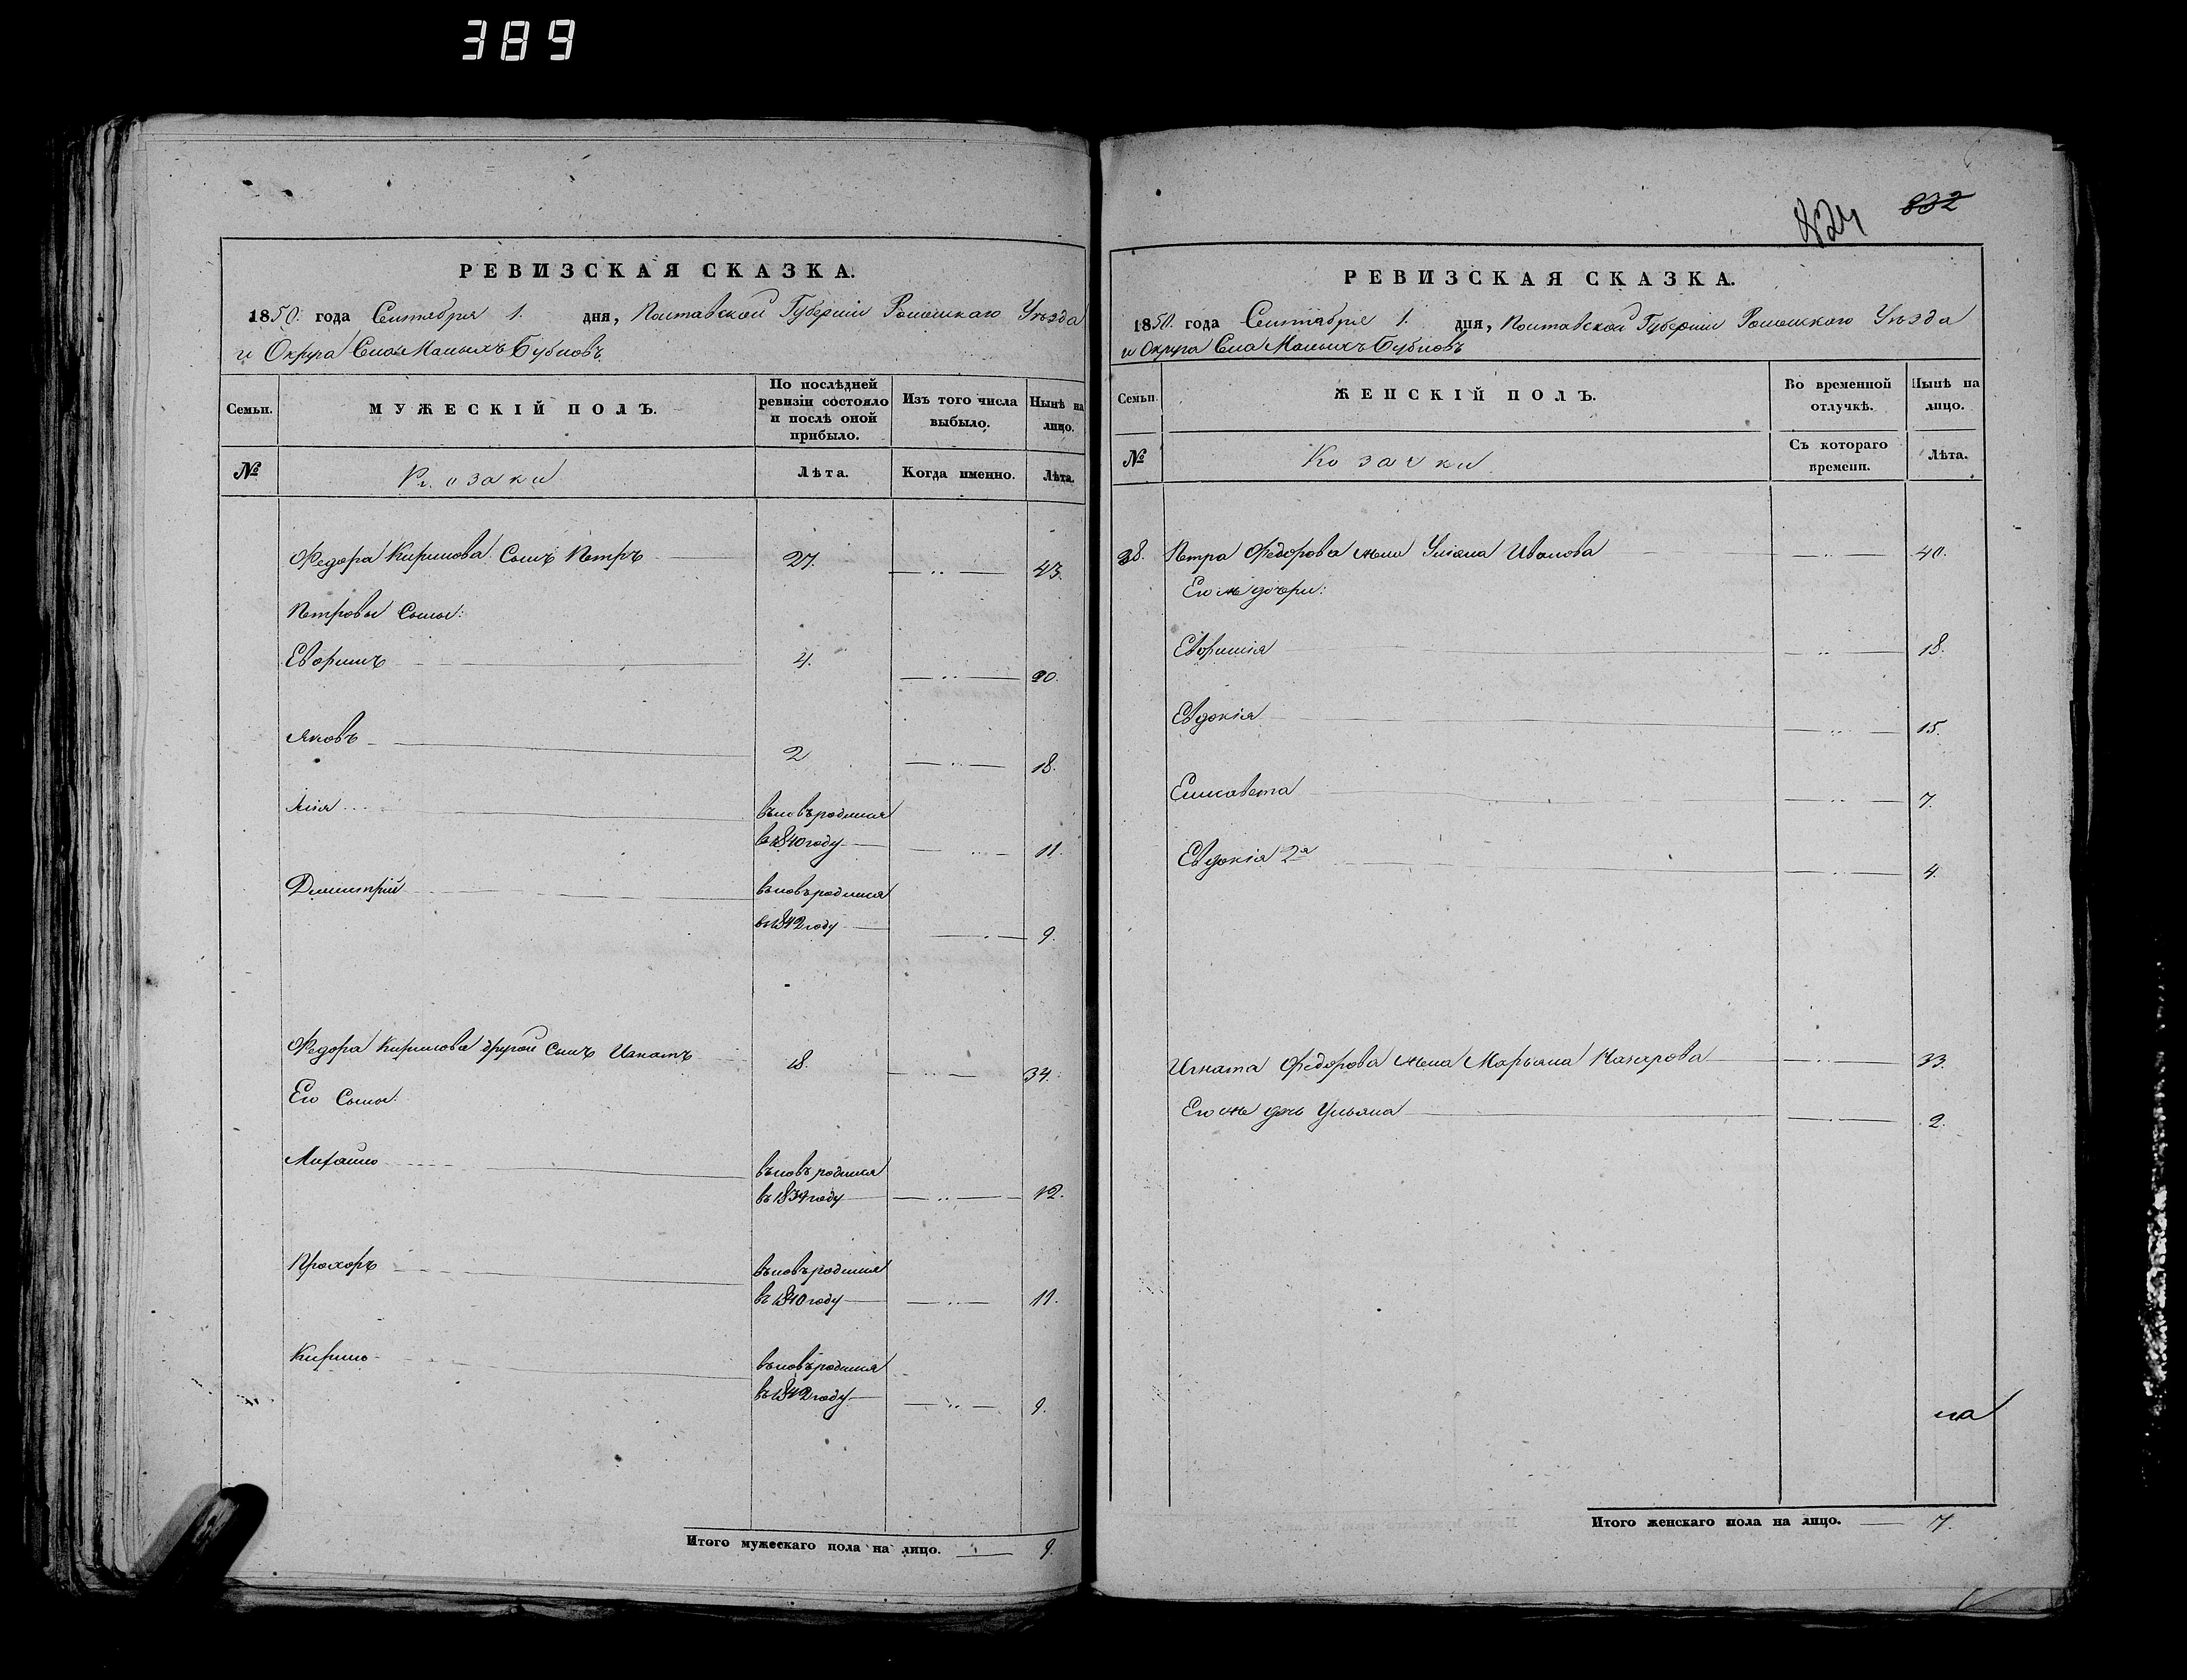 389
РЕВИЗСКАЯ СКАЗКА.
1850. года Сентября 1. дня, Полтавской Губерніи Роменскаго Уѣзда
и Округа Села Малыхъ Бубновъ
Семьи.
МУЖЕСКІЙ ПОЛЪ.
По послѣдней ревизіи состояло и послѣ оной прибыло.
Изъ того числа выбыло.
Нынѣ на лицо.
№
Козаки
Лѣта.
Когда именно.
Лѣта.
Федора Кирилова Сынъ Петръ 27. 43.
Петровы Сыны:
Евфимъ 4. 20.
Яковъ 2 18.
Илія вновьродился
въ 1840 году 11.
Димитрій вновьродился
въ 1842 году 9.
Федора Кирилова другой Сынъ Игнатъ 18. 34.
Его Сыны:
Михайло вновьродился
въ 1839 году 12.
Прохоръ вновьродился
въ 1840 году 11.
Кирило вновьродился
въ 1842 году 9.
Итого мужескаго пола на лицо. 9.
824
832
РЕВИЗСКАЯ СКАЗКА.
1850. года Сентября 1. дня, Полтавской Губерніи Роменскаго Уѣзда
и Округа Села Малыхъ Бубновъ
Семьи
ЖЕНСКІЙ ПОЛЪ.
Во временной отлучкѣ.
Нынѣ на лицо.
№
Козачки
Съ котораго времени.
Лѣта.
38. Петра Федорова жена Уліана Иванова 40.
Его же дочери:
Евфимія 18.
Евдокія 15.
Елисавета 7.
Евдокія 2я 4.
Игната Федорова жена Марьяна Назарова 33.
Его же дочь Ульяна 2.
на
Итого женскаго пола на лицо. 7.